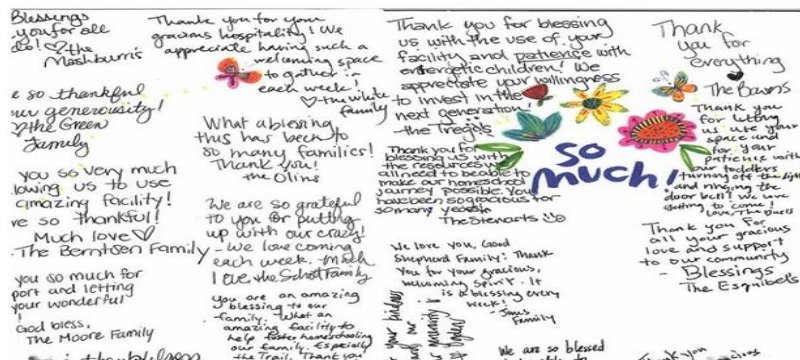 Blessings
you for all
do! ♡ the
Mashburn's
e so thankful
ur generosity!
♡ the Green
Family
you so very much
lowing us to use
amazing facility!
re so thankful!
Much love ♡
The Berntsen Family
you so much for
port and letting
your wonderful
!
God bless,
The Moore Family
Thank you for your
gracious hospitality! We
appreciate having such a
welcoming space
to gather in
each week!
♡ the White
family
What a blessing
this has been to
so many families!
Thank you!
the Olins
We are so grateful
to you for putting
up with our crazy!
- We love coming
each week. Much
love, the Schott Family
You are an amazing
blessing to our
family. What an
amazing facility to
help foster homeschooling
our family. Especially
the Trail. Thank you
Thank you for blessing
us with the use of your
facility and patience with
energetic children! We
appreciate your willingness
to invest in the
next generation!
- the Trejo's
Thank you for
blessing us with
the resources we
all need to be able to
make our homeschool
journey possible. You
have been so gracious for
so many years.
The Stewarts ☺
so
much!
We love you, Good
Shepherd Family! Thank
You for your gracious,
welcoming Spirit. It
is a blessing every
week.
- Jones
Family
We are so blessed
Thank
you for
everything
♥ The Bawns
Thank you
for letting
us use your
space and
for your
patience with
our toddlers
turning off the lights
and ringing the
door bell! we love
getting to come!
Love, The
Thank you for
all your gracious
love and support
to our community
- Blessings
The Esquibel's
Thank you